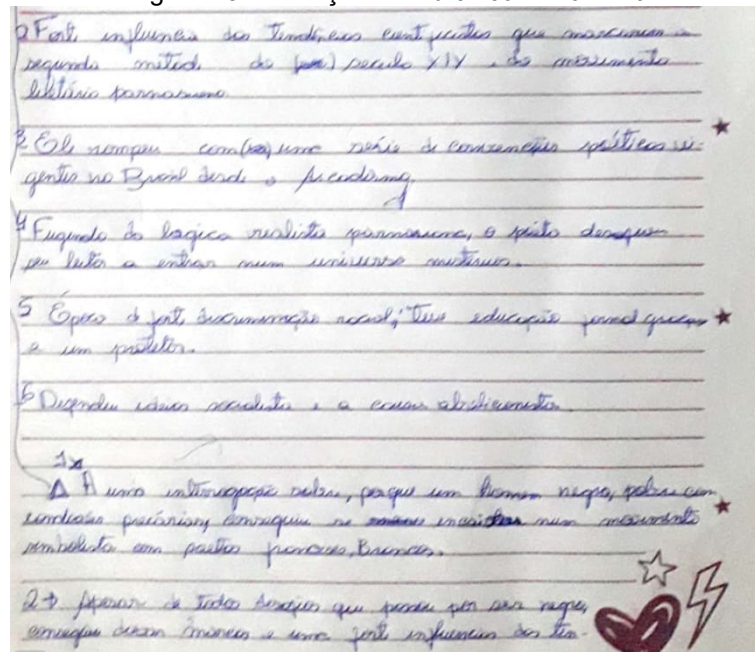 2 Forte influencia das Tendências cientificistas que marcaram a
segunda metade do seculo XIX e do movimento
literário parnasiano.
3 Ele rompeu com uma série de convenções poéticas vi-
gentes no Brasil desde o Arcadismo
4 Fugindo da logica realista parnasiana, o poeta
seu leitor a entrar num universo
5 Época d forte discriminação racial, Teve educação formal graças
a um protetor.
6 Defendeu ideias socialistas e a causa abolicionista.
1x
A uma interrogação sobre, porque um homem negro, pobre com
condições precárias, conseguiu se num movimento
simbolista com poetas franceses, Brancos.
2 → Apesar de todos desafios que por ser negro,
conseguiu deixar e uma forte influencia das ten-